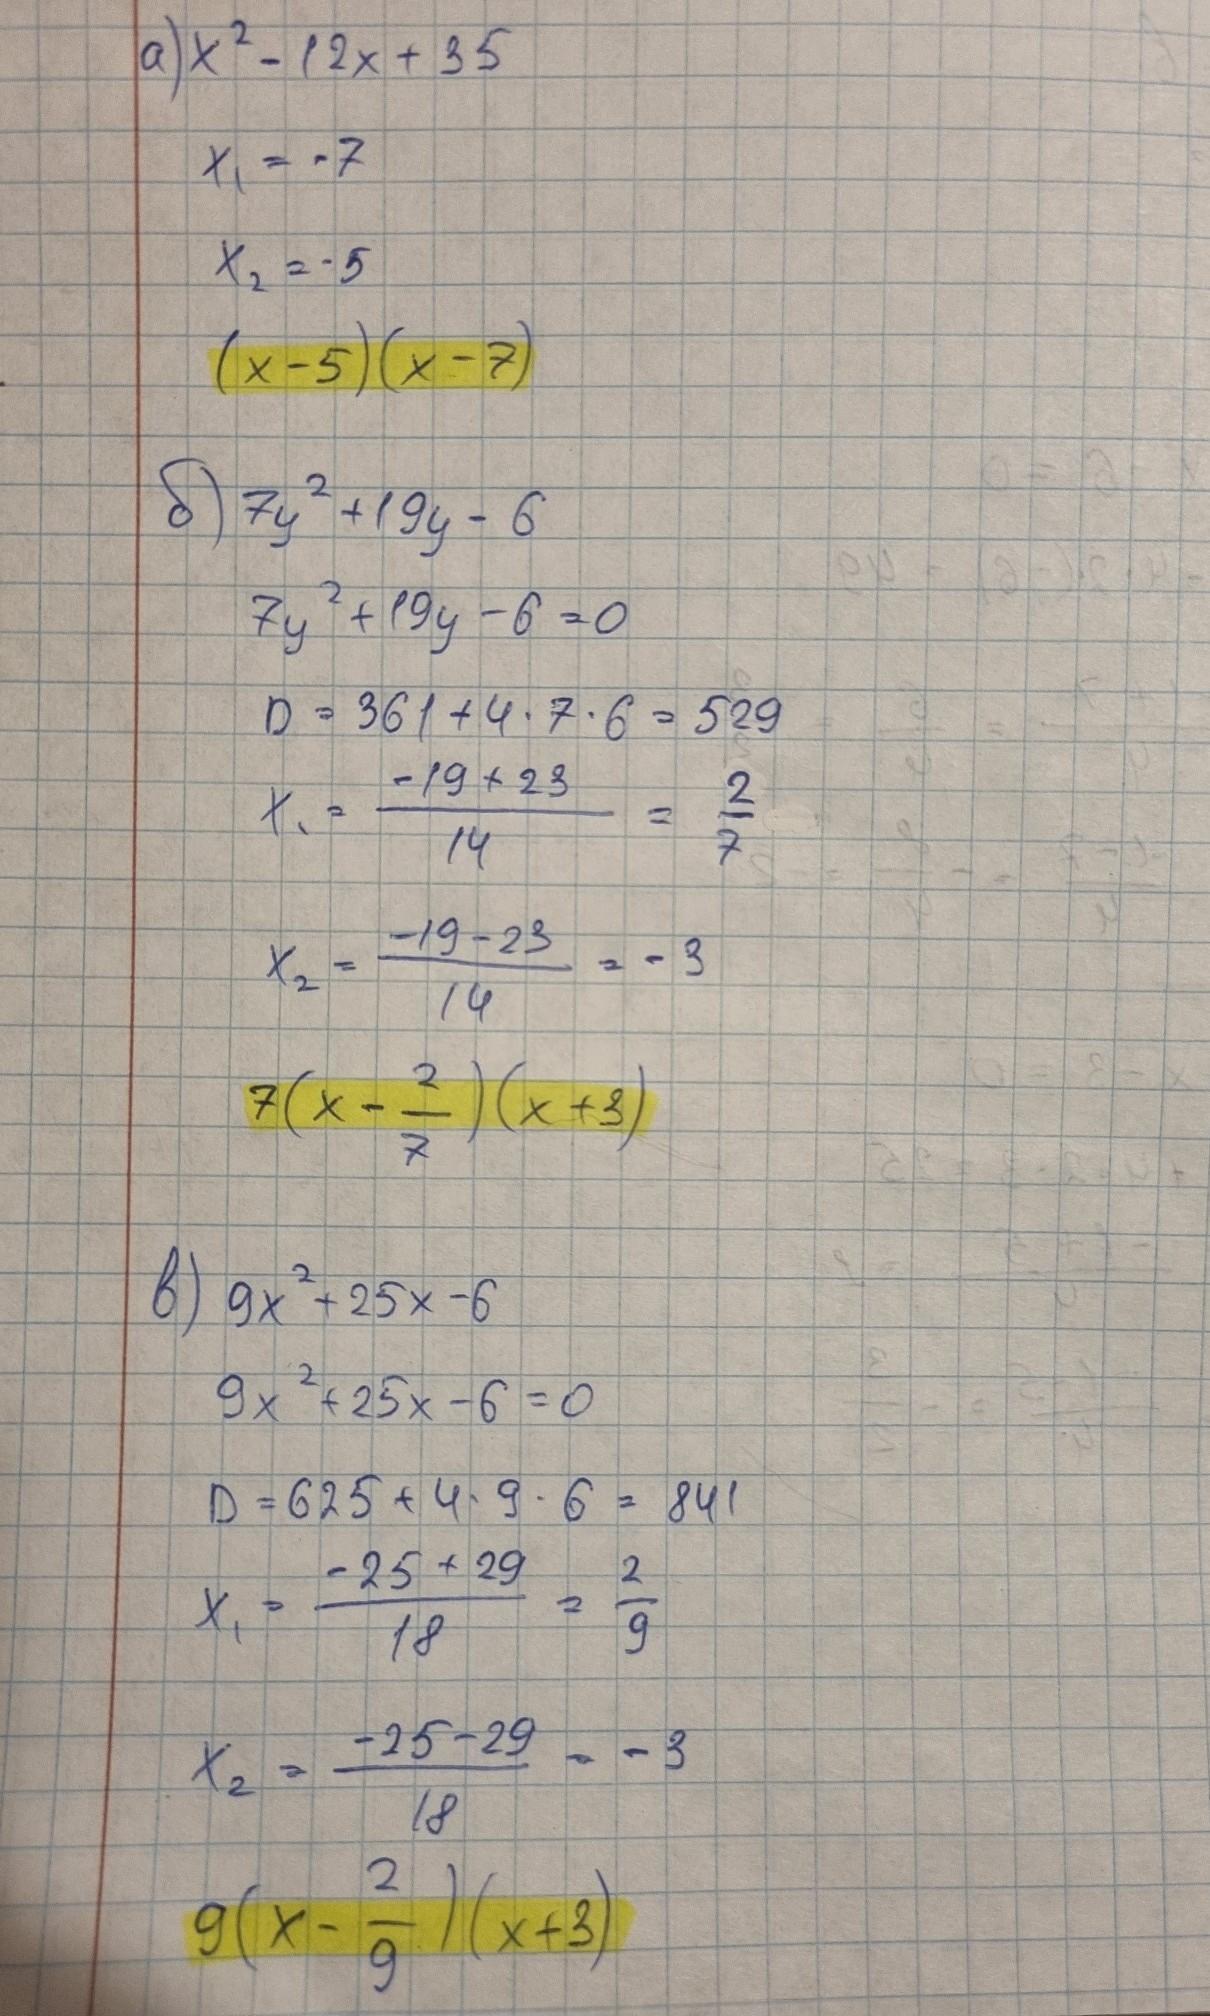 а) x² - 12x + 35
x₁ = -7
x₂ = -5
(x - 5)(x - 7)
б) 7y² + 19y - 6
7y² + 19y - 6 = 0
D = 361 + 4 · 7 · 6 = 529
x₁ = (-19 + 23)/14 = 2/7
x₂ = (-19 - 23)/14 = -3
7(x - 2/7)(x + 3)
в) 9x² + 25x - 6
9x² + 25x - 6 = 0
D = 625 + 4 · 9 · 6 = 841
x₁ = (-25 + 29)/18 = 2/9
x₂ = (-25 - 29)/18 = -3
9(x - 2/9)(x + 3)